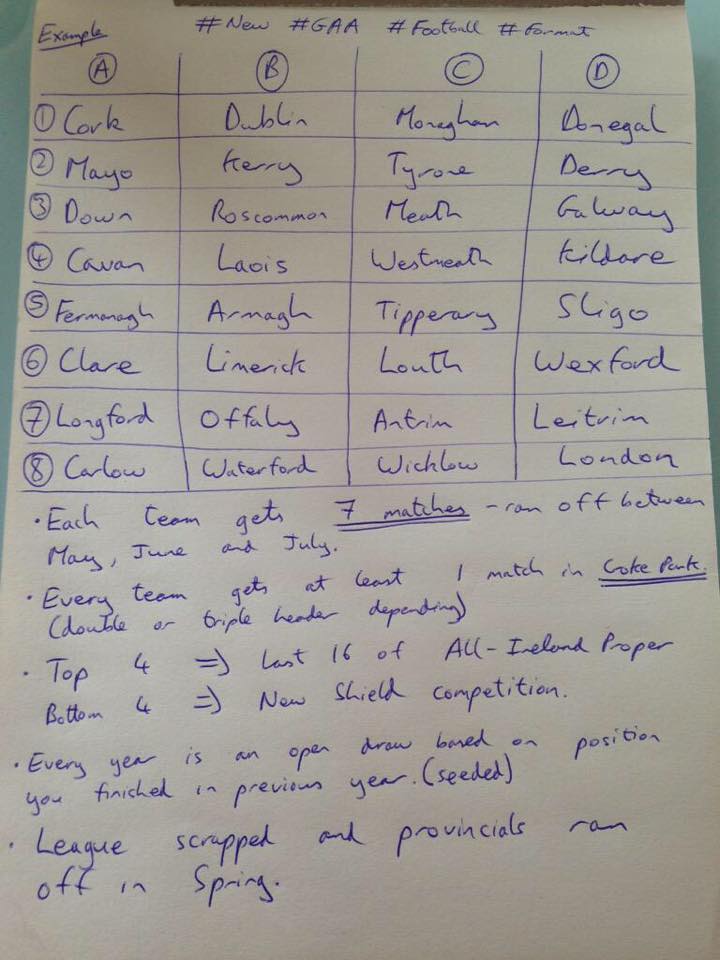 Example #New #GAA #Football #Format
A B C D
1 Cork Dublin Monaghan Donegal
2 Mayo Kerry Tyrone Derry
3 Down Roscommon Meath Galway
4 Cavan Laois Westmeath Kildare
5 Fermanagh Armagh Tipperary Sligo
6 Clare Limerick Louth Wexford
7 Longford Offaly Antrim Leitrim
8 Carlow Waterford Wicklow London
• Each team gets 7 matches - ran off between
May, June and July.
• Every team gets at least 1 match in Croke Park.
(double or triple header depending)
• Top 4 => Last 16 of All-Ireland Proper
Bottom 4 => New Shield competition.
• Every year is an open draw based on position
you finished in previous year. (seeded)
• League scrapped and provincials ran
off in Spring.